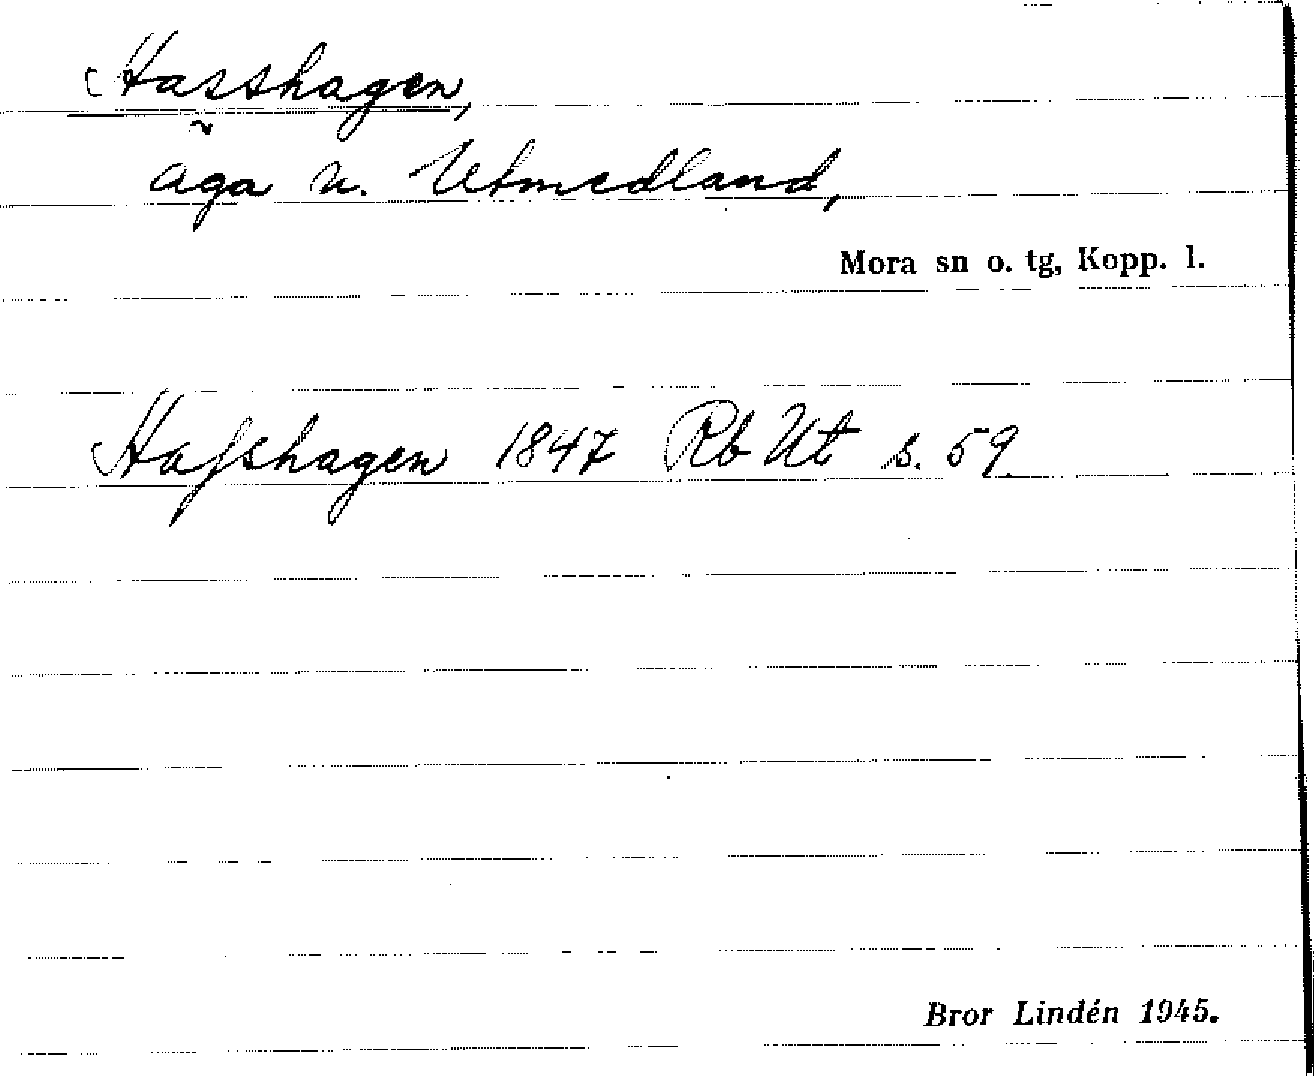 Hasshagen,
äga n. Utmedland,
Mora sn o. tg, Kopp. l.
Haſshagen 1847 Rb Ut s. 59
Bror Lindén 1945.